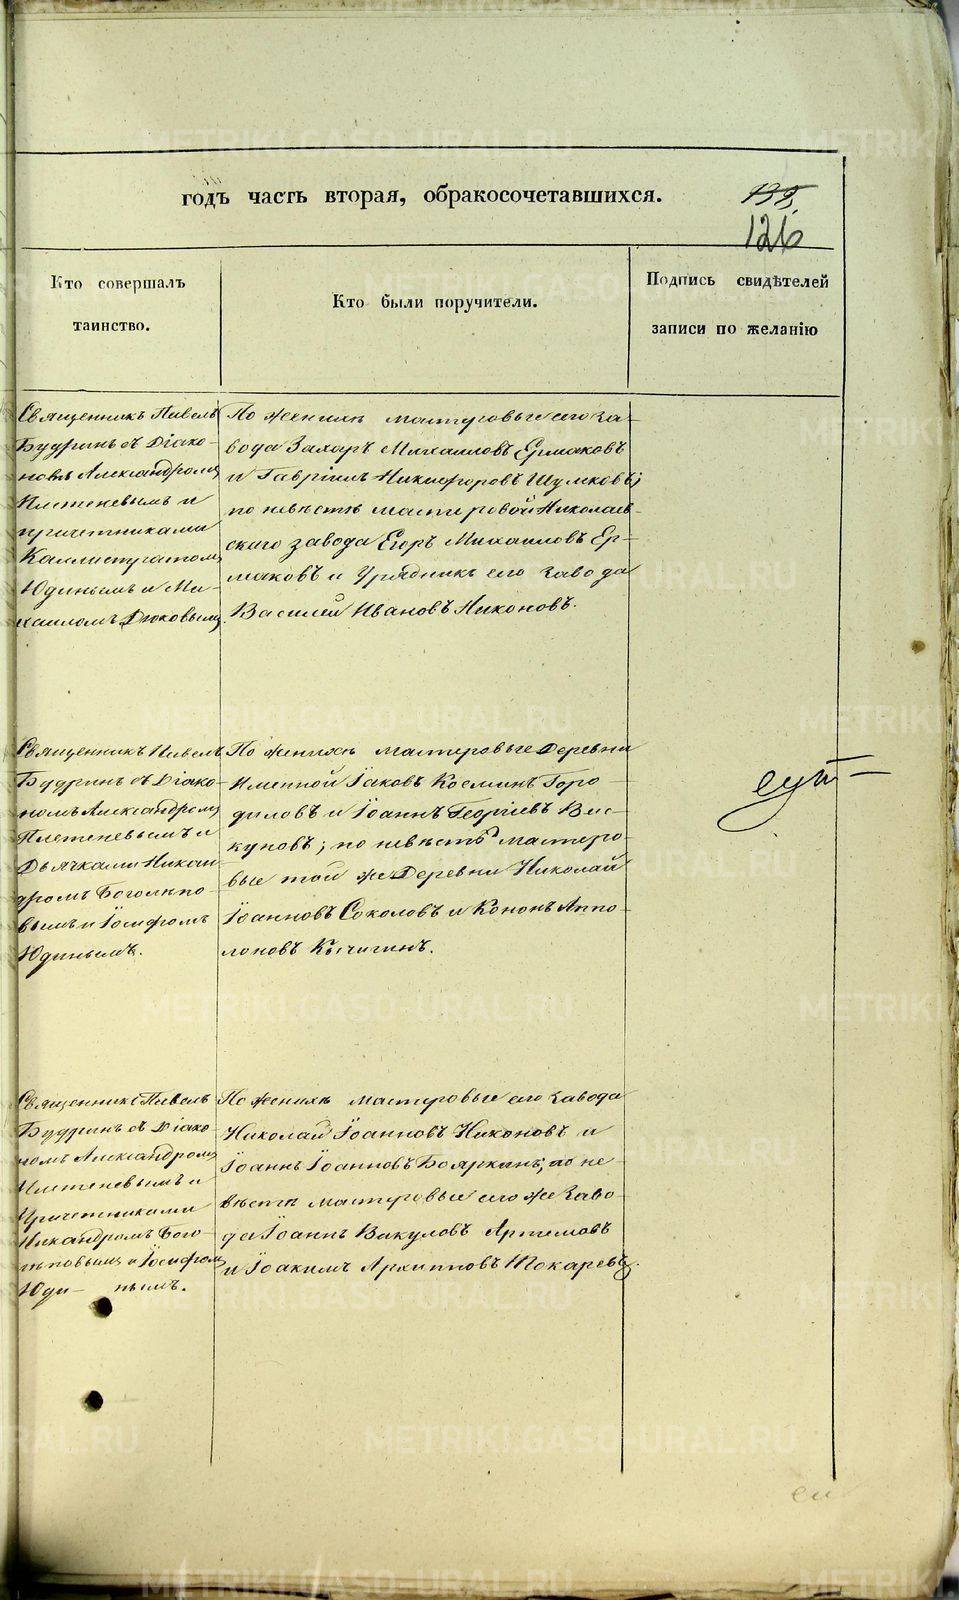 годъ часть вторая, обракосочетавшихся.
138.
126
Кто совершалъ
таинство.
Кто были поручители.
Подпись свидѣтелей
записи по желанію
Священникъ Павелъ
Будринъ съ Діако-
номъ Александромъ
Плетеневымъ и
причетниками
Каллистратомъ
Юдинымъ и Ми-
хаиломъ Дюковымъ.
По женихѣ мастеровые сего за-
вода Захаръ Михаиловъ Ермаковъ
и Гавріилъ Никифоровъ Шумковъ;
по невѣстѣ мастеровой Николаев-
скаго завода Егоръ Михаиловъ Ер-
маковъ и Урядникъ сего завода
Василей Ивановъ Никоновъ.
Священникъ Павелъ
Будринъ съ Діако-
номъ Александромъ
Плетеневымъ и
Дьячками Никан-
дромъ Боголѣпо-
вымъ и Іосифомъ
Юдинымъ.
По женихѣ мастеровые Деревни
Именной Іаковъ Косминъ Горо
диловъ и Іоаннъ Георгіевъ Вис-
куновъ; по невѣстѣ мастеро-
вые той же Деревни Николай
Іоанновъ Соколовъ и Кононъ Аппо-
лоновъ Кычигинъ.
Священникъ Павелъ
Будринъ съ Діако-
номъ Александромъ
Плетеневымъ и
Причетниками
Никандромъ Бого-
лѣповымъ и Іосифомъ
Юди- нымъ.
По женихѣ мастеровые сего завода
Николай Іоанновъ Никоновъ и
Іоаннъ Іоанновъ Бояркинъ; по не-
вѣстѣ мастеровые сего же Заво-
да Іоаннъ Вакуловъ Артемовъ
и Іоакимъ Архиповъ Токаревъ.
METRIKI.GASO-URAL.RU